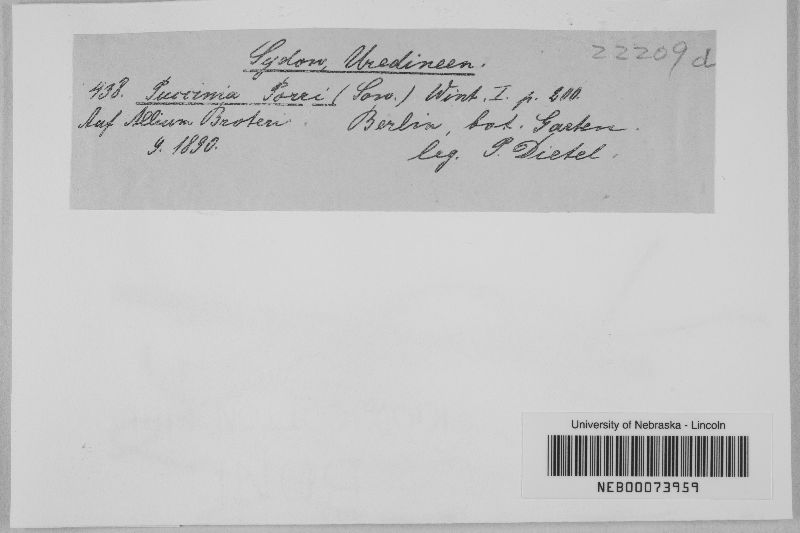 Sydow, Uredineen.
22209 d
438. Puccinia Porri (Sow.) Wint. I. p. 200.
Auf Allium Broteri. Berlin, bot. Garten.
9. 1890. leg. P. Dietel.
University of Nebraska - Lincoln
NEB00073959